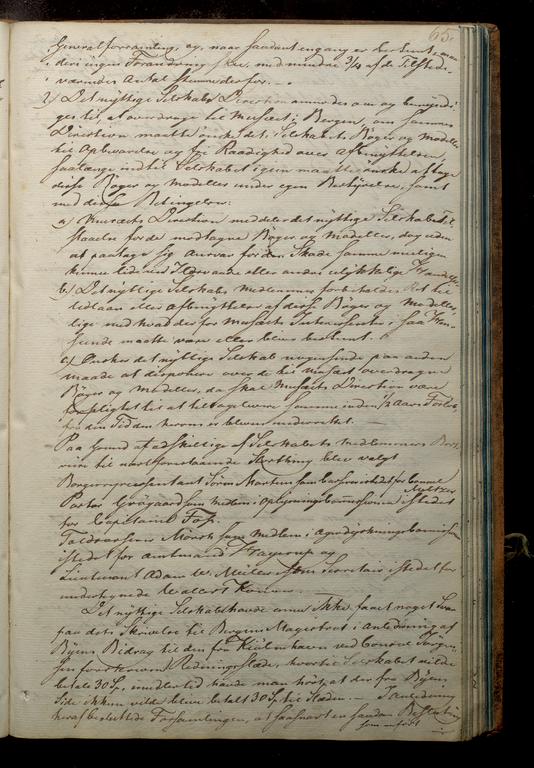 65.
Generalforsamling, og, naar saadant engang er bestemt, maa
deri ingen Forandring skee, med mindre 3/4 af de Tilstede-
værendes Antal stemmer for. —
2) Det nyttige Selskabs Direction anmodes om og bemyndi-
ges til, at overdrage til Musæet i Bergen, om sammes
Direction maatte ønske det, Selskabets Bøger og Modeller
til Opbevarelse og frie Raadighed over Afbenyttelsen,
saalænge indtil Selskabet igien maatte ønske at tage
disse Bøger og Modeller under egen Bestyrelse, samt
med disse Betingelser:
a) Musæets Direction meddeler det nyttige Selskab til-
staaelse for de modtagne Bøger og Modeller, dog uden
at paatage sig Ansvar for den Skade samme muligen
kunne lide ved Ildsvaade eller anden ulykkelig Hændelse
b) Det nyttige Selskabs Medlemmer forbeholdes Ret til
Udlaan eller Afbenyttelse af disse Bøger og Modeller,
lige med hvad der for Musæets Interessenter i saa Hen-
seende maatte være eller blive bestemt.
c) Ønsker det nyttige Selskab nogensinde paa anden
maade at disponere over de til Musæet overdragne
Bøger og Modeller, da skal Musæets Direction være
forpligtet til at tilbagelevere samme inden 1/2 Aars Forløb
fra den Tid den herom er bleven underrettet. —
Paa Grund af adskillige af Selskabets Medlemmers Bort-
reise til nærforestaaende Storthing blev valgt
Borgerrepræsentant Sören Martens som Cassererer istedet for Consul Meltzer
Pastor Grögaard som medlem i Oplysningscommissionen istedet
for Capitaine Foss.
Toldcasserer Mörch som Medlem i Agerdyrkningscommissionen
istedet for Amtmand Hagerup og
Lieutenant Adam W. Müller som Secretair istedet for
undertegnede
Det nyttige Selskab havde endnu ikke faaet noget Svar
paa dets Skrivelse til Bergens Magistrat i Anledning af
Byens Bidrag til den fra Kiöbenhavn ved Consul Jörgen-
sen forskrevne Redningsstade, hvortil Selskabet vilde
betale 30 Sp, imidlertid havde man hört, at der fra Byens
Side ikkun vilde blive betalt 30 Sp til Staden. — I Anledning
heraf besluttede Forsamlingen, at saasnart en saadan Beslutning
som anført